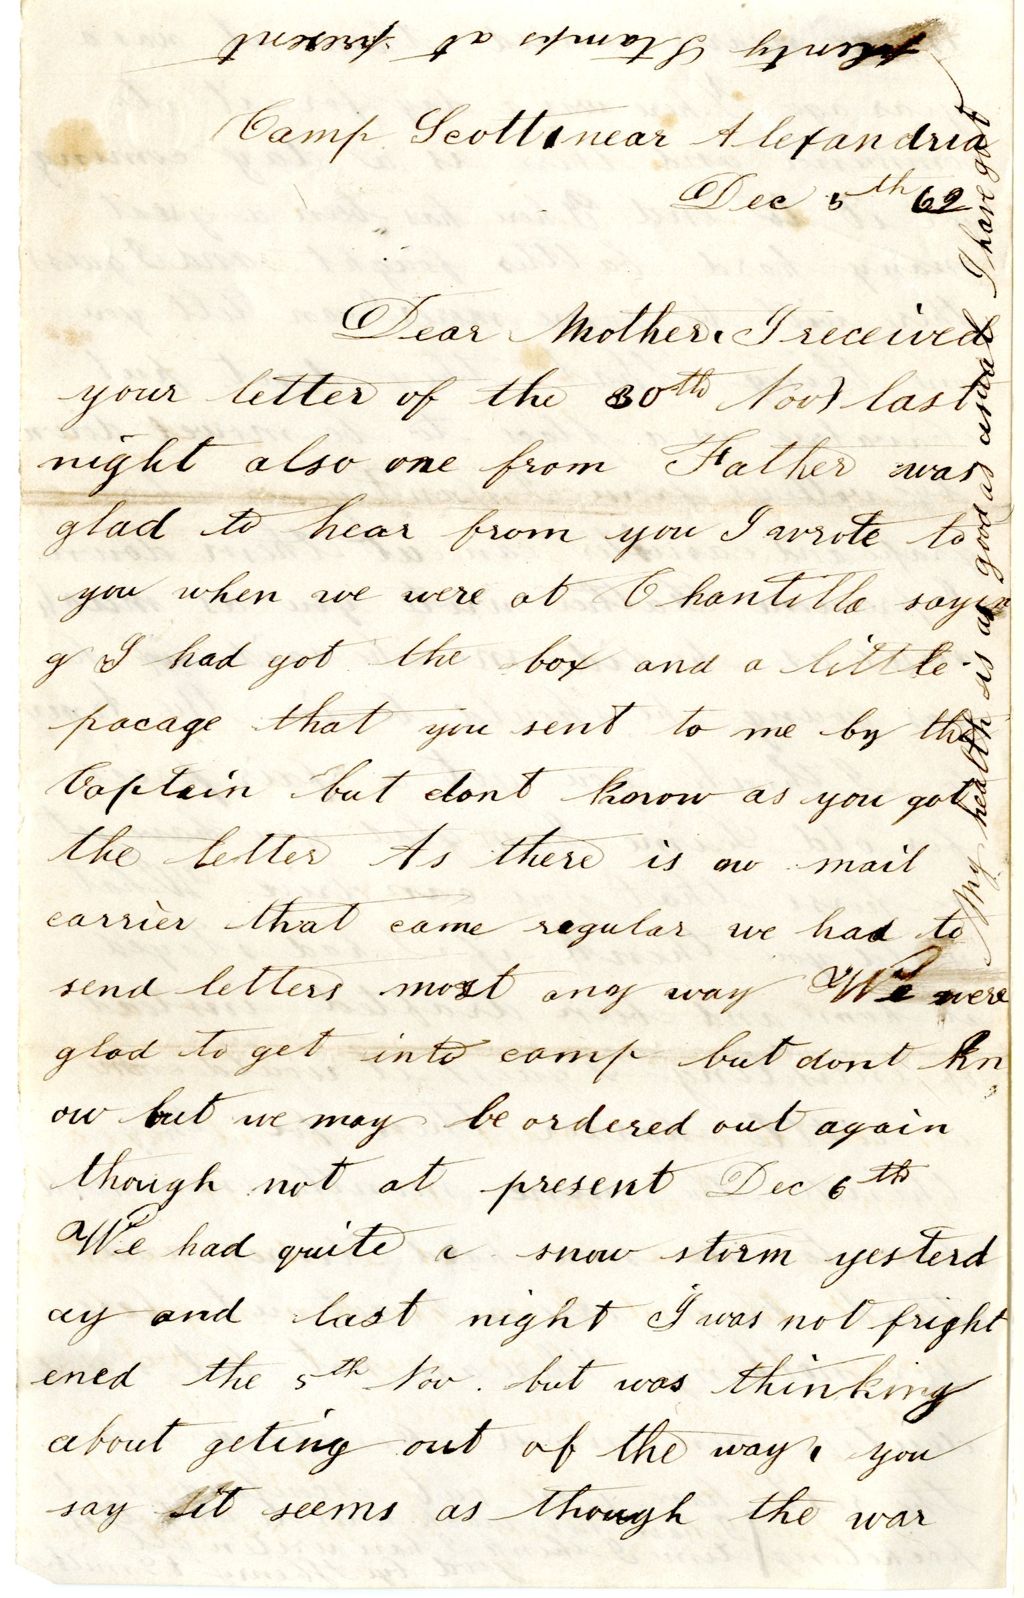 Camp Scott near Alexandria
Dec 5th 62
Dear Mother. I received
your letter of the 30th Nov) last
night also one from Father was
glad to hear from you I wrote to
you when we were at Chantilla sayin
g I had got the box and a little
pacage that you sent to me by the
Captain but dont know as you got
the letter As there is no mail
carrier that came regular we had to
send letters most any way We were
glad to get into camp but dont kn
ow but we may be ordered out again
though not at present Dec 6th
We had quite a snow storm yesterd
ay and last night I was not fright
ened the 5th Nov. but was thinking
about geting out of the way. you
say it seems as though the war
My health is as good as usual I have got
plenty Stamps at present